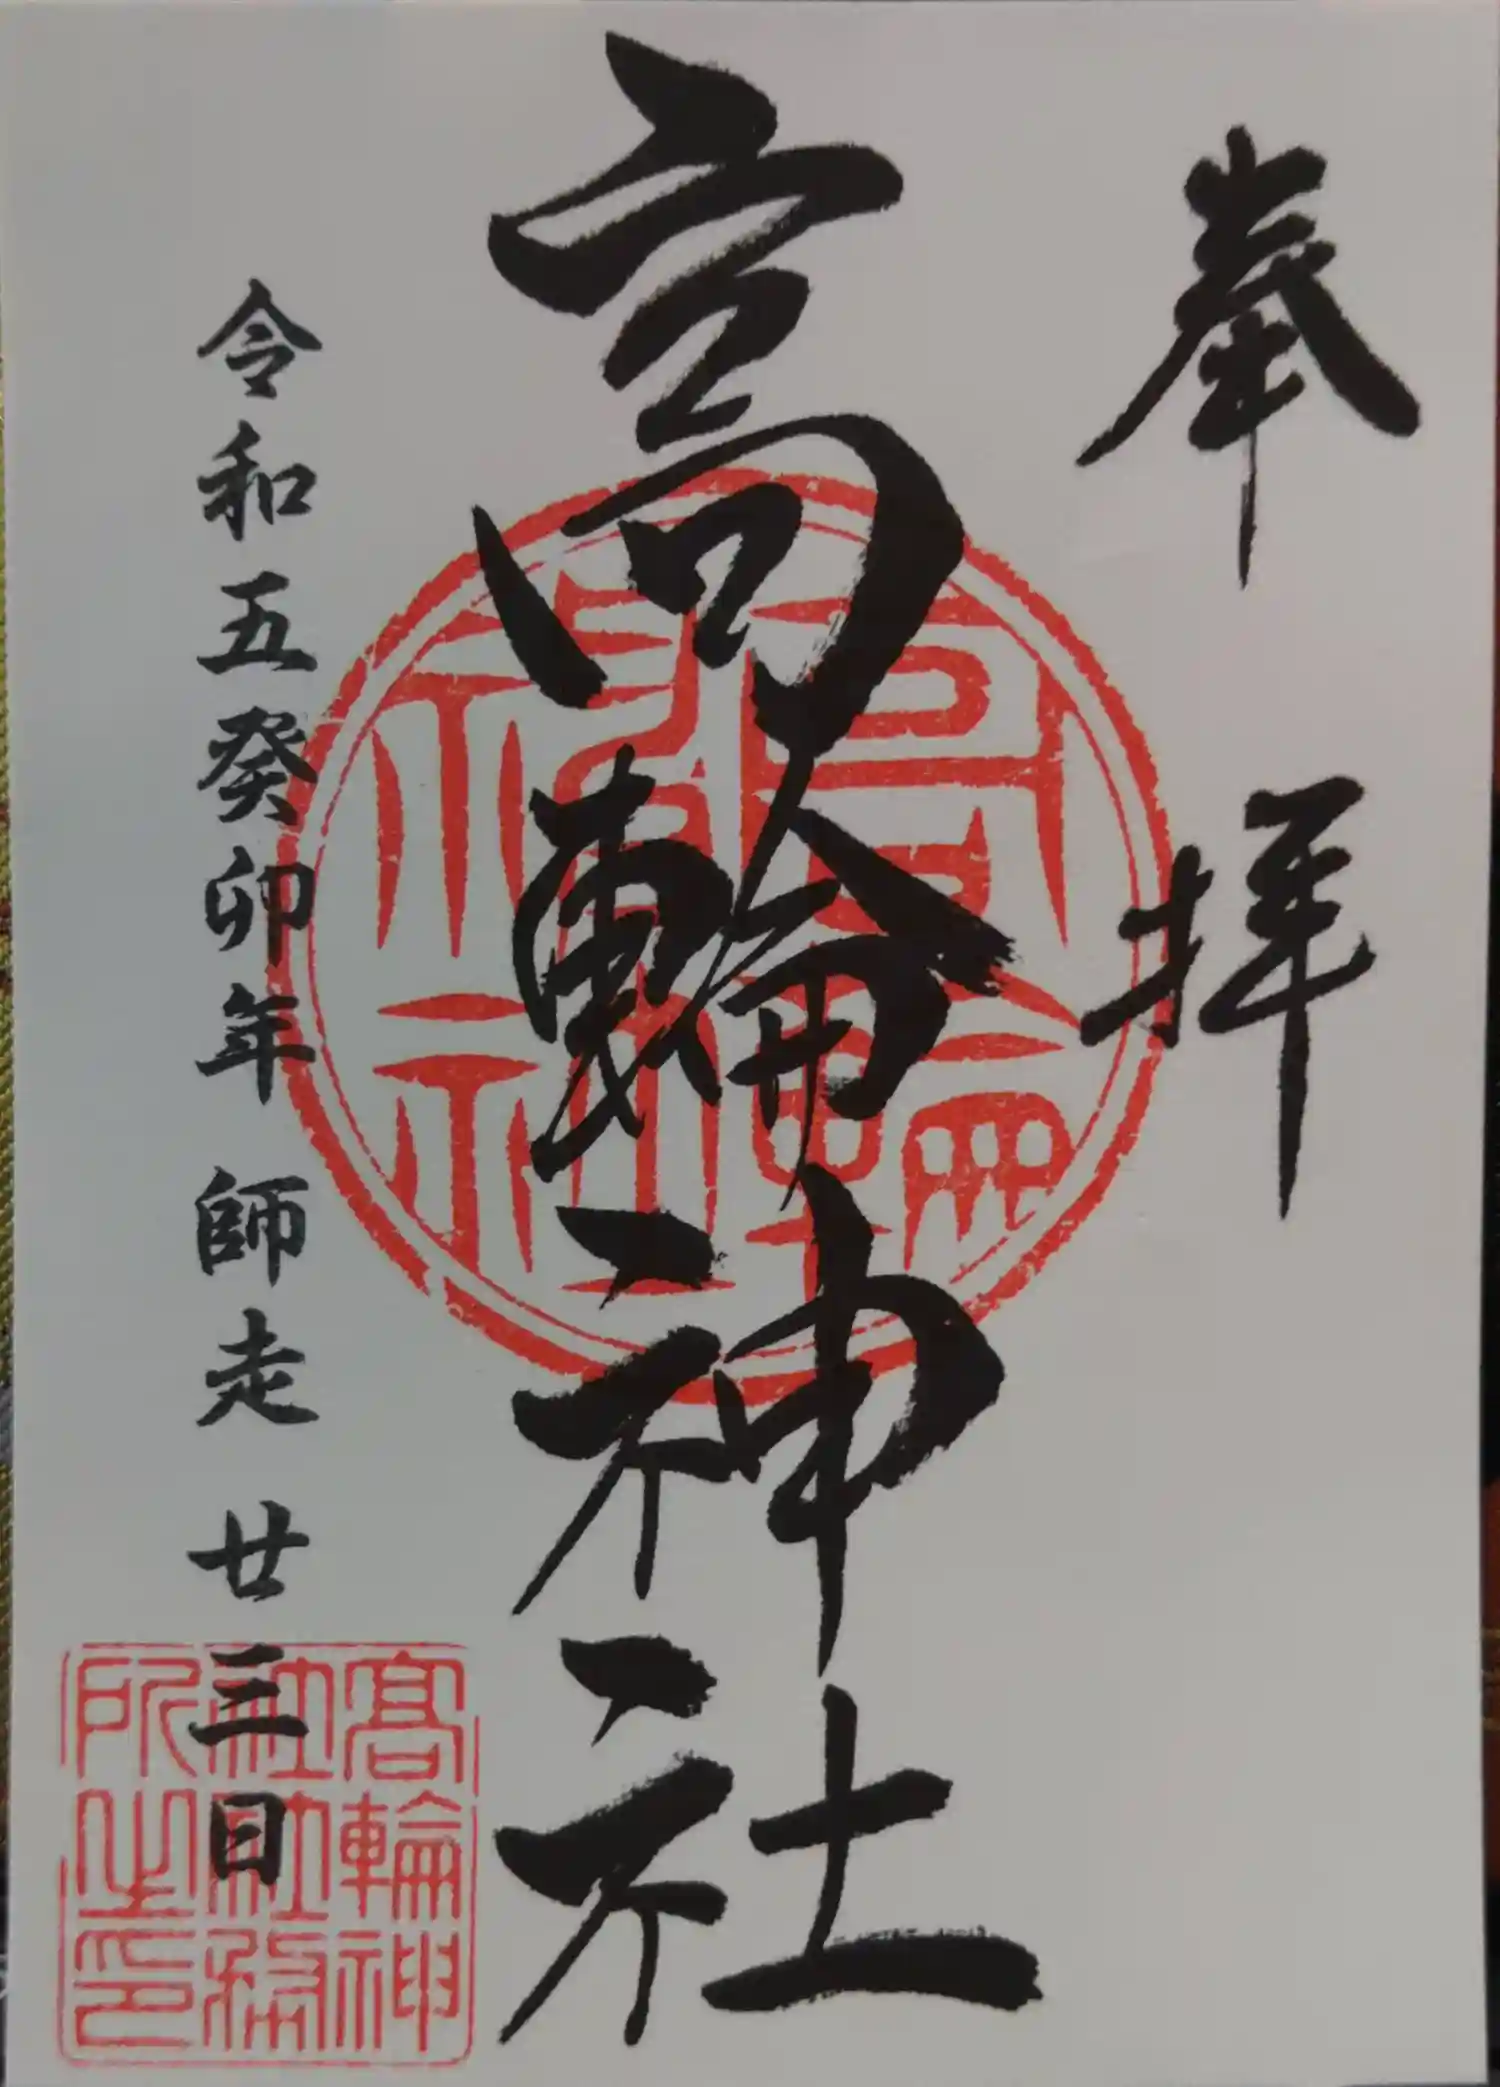 奉拝
高輪神社
令和五癸卯年 師走 廿三日
高輪神社
高輪神
社社務
所之印